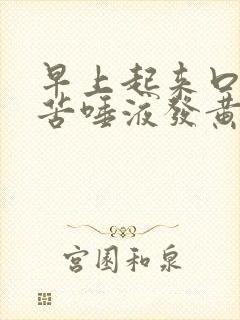 早上起来口
苦唾液發黃
宮園和泉